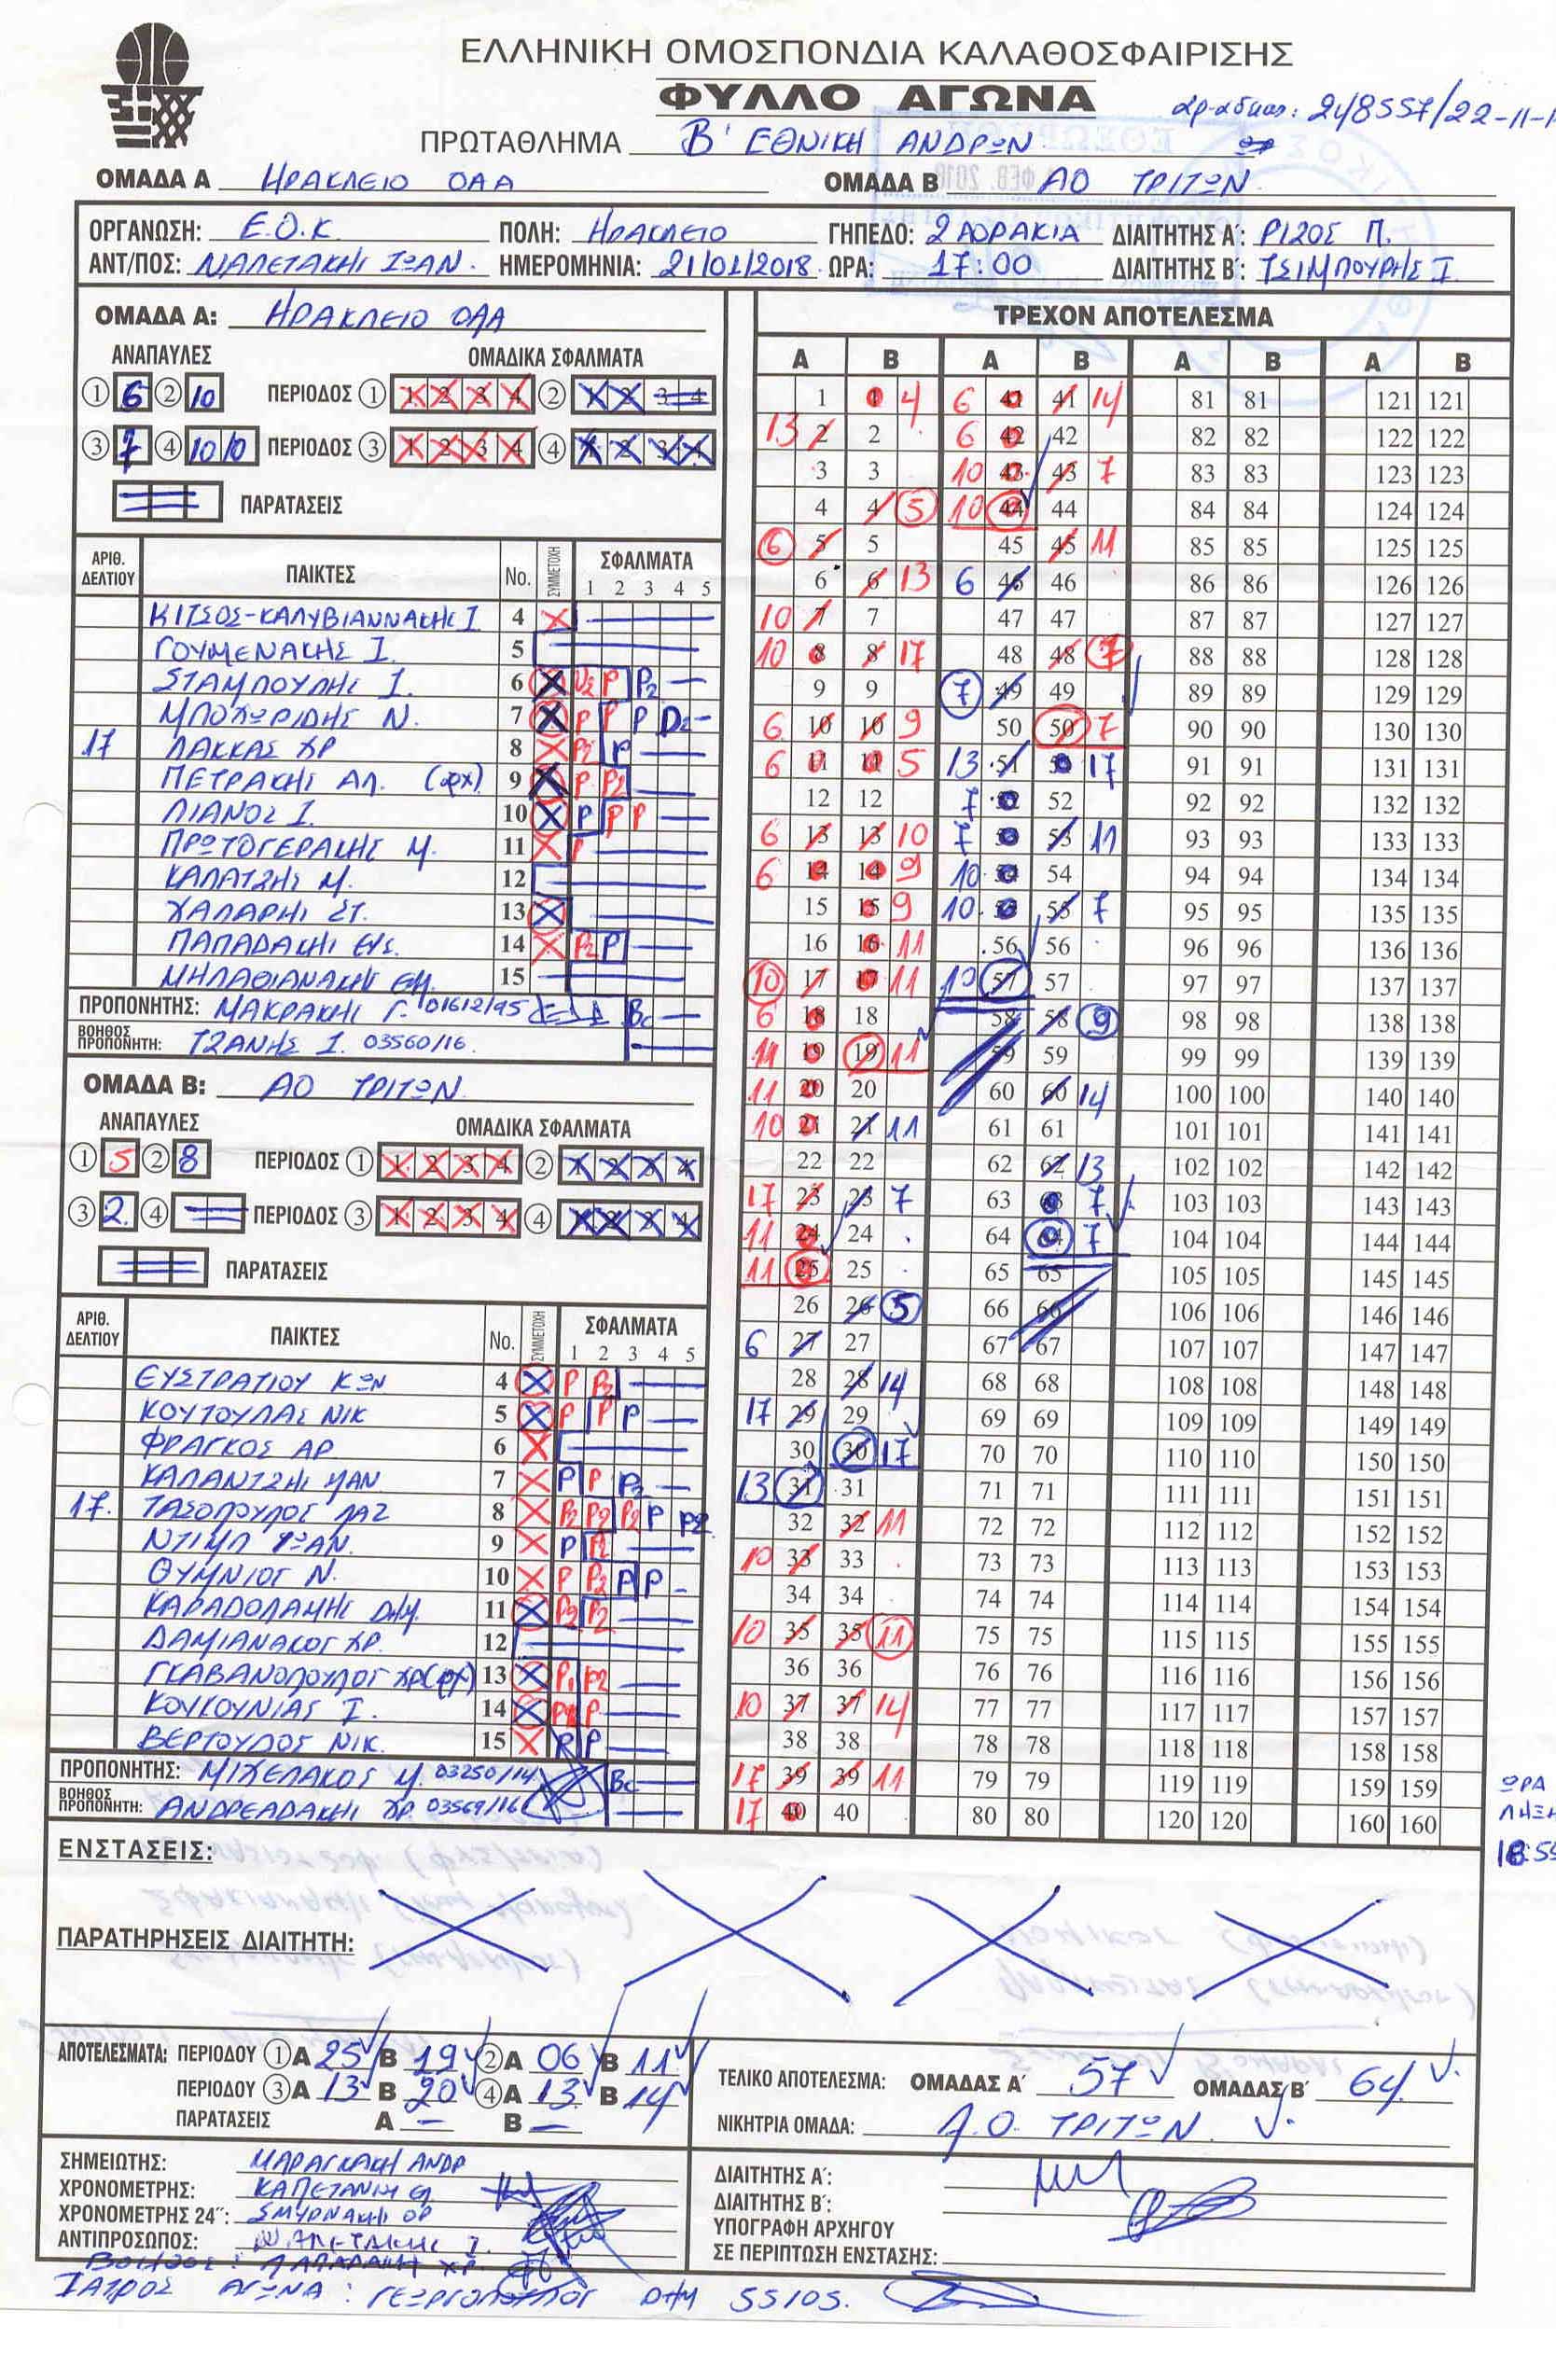 ΕΛΛΗΝΙΚΗ ΟΜΟΣΠΟΝΔΙΑ ΚΑΛΑΘΟΣΦΑΙΡΙΣΗΣ
ΦΥΛΛΟ ΑΓΩΝΑ
248557/22-11-1
ΠΡΩΤΑΘΛΗΜΑ Β' ΕΘΝΙΚΗ ΑΝΔΡΩΝ
ΟΜΑΔΑ Α ΗΡΑΚΛΕΙΟ ΟΑΑ ΟΜΑΔΑ Β ΑΟ ΤΡΙΤΩΝ
ΟΡΓΑΝΩΣΗ: Ε.Ο.Κ ΠΟΛΗ: ΗΡΑΚΛΕΙΟ ΓΗΠΕΔΟ: 2 ΑΟΡΑΚΙΑ ΔΙΑΙΤΗΤΗΣ Α΄: ΡΙΖΟΣ Π.
ΑΝΤ/ΠΟΣ: ΝΑΛΕΤΑΚΗΣ ΙΩΑΝ. ΗΜΕΡΟΜΗΝΙΑ: 21/01/2018 ΩΡΑ: 17:00 ΔΙΑΙΤΗΤΗΣ Β΄: ΤΣΙΜΠΟΥΡΗΣ Ι.
ΟΜΑΔΑ Α: ΗΡΑΚΛΕΙΟ ΟΑΑ
ΑΝΑΠΑΥΛΕΣ ΟΜΑΔΙΚΑ ΣΦΑΛΜΑΤΑ
① 6 ② 10 ΠΕΡΙΟΔΟΣ ① 1 2 3 4 ② 1 2 3 4
③ 7 ④ 10 10 ΠΕΡΙΟΔΟΣ ③ 1 2 3 4 ④ 1 2 3 4
ΠΑΡΑΤΑΣΕΙΣ
ΑΡΙΘ. ΔΕΛΤΙΟΥ ΠΑΙΚΤΕΣ No. ΣΥΜΜΕΤΟΧΗ ΣΦΑΛΜΑΤΑ
1 2 3 4 5
ΚΙΤΣΟΣ-ΚΑΛΥΒΙΑΝΝΑΚΗΣ Ι 4
ΓΟΥΜΕΝΑΚΗΣ Ι. 5
ΣΤΑΜΠΟΥΛΗΣ Ι. 6 U2 P P2
ΜΠΟΧΩΡΙΔΗΣ Ν. 7 P P P
17 ΛΑΚΚΑΣ ΧΡ 8 P2 P
ΠΕΤΡΑΚΗΣ ΑΛ. (αρχ) 9 P P2
ΛΙΑΝΟΣ Ι. 10 P P P
ΠΡΩΤΟΓΕΡΑΚΗΣ Μ. 11 P
ΚΑΛΑΤΖΗΣ Μ. 12
ΧΑΛΑΡΗΣ ΣΤ. 13
ΠΑΠΑΔΑΚΗΣ ΕΥΣ. 14 P2 P
ΜΗΛΑΘΙΑΝΑΚΗΣ ΕΜ. 15
ΠΡΟΠΟΝΗΤΗΣ: ΜΑΚΡΑΚΗΣ Γ. 01612/95
ΒΟΗΘΟΣ ΠΡΟΠΟΝΗΤΗ: ΤΖΑΝΗΣ Ι. 03560/16
ΟΜΑΔΑ Β: ΑΟ ΤΡΙΤΩΝ
ΑΝΑΠΑΥΛΕΣ ΟΜΑΔΙΚΑ ΣΦΑΛΜΑΤΑ
① 5 ② 8 ΠΕΡΙΟΔΟΣ ① 1 2 3 4 ② 1 2 3 4
③ 2 ④ ΠΕΡΙΟΔΟΣ ③ 1 2 3 4 ④ 1 2 3 4
ΠΑΡΑΤΑΣΕΙΣ
ΑΡΙΘ. ΔΕΛΤΙΟΥ ΠΑΙΚΤΕΣ No. ΣΥΜΜΕΤΟΧΗ ΣΦΑΛΜΑΤΑ
1 2 3 4 5
ΕΥΣΤΡΑΤΙΟΥ ΚΩΝ 4 P P2
ΚΟΥΤΟΥΛΑΣ ΝΙΚ 5 P P P
ΦΡΑΓΚΟΣ ΑΡ 6
ΚΑΛΑΝΤΖΗΣ ΠΑΝ. 7 P P P2
17. ΤΑΣΟΠΟΥΛΟΣ ΛΑΖ 8 P2 P2 P2 P P2
ΝΤΙΜΠ ΙΩΑΝ. 9 P P2
ΘΥΜΝΙΟΣ Ν. 10 P P2 P P
ΚΑΡΑΔΟΛΑΜΗΣ ΔΗΜ. 11 P2 P2
ΔΑΜΙΑΝΑΚΟΣ ΧΡ. 12
ΓΚΑΒΑΝΟΠΟΥΛΟΣ ΧΡ(αρχ) 13 P1 P2
ΚΟΥΚΟΥΝΙΑΣ Ι. 14
ΒΕΡΓΟΥΛΟΣ ΝΙΚ. 15
ΠΡΟΠΟΝΗΤΗΣ: ΜΙΧΕΛΑΚΟΣ Μ. 03250/14
ΒΟΗΘΟΣ ΠΡΟΠΟΝΗΤΗ: ΑΝΔΡΕΑΔΑΚΗΣ ΧΡ. 03569/16
ΤΡΕΧΟΝ ΑΠΟΤΕΛΕΣΜΑ
Α Β Α Β Α Β Α Β
1 1 4 6 41 41 14 81 81 121 121
13 2 2 6 42 42 82 82 122 122
3 3 10 43 43 7 83 83 123 123
4 4 5 10 44 44 84 84 124 124
6 5 5 45 45 11 85 85 125 125
6 6 13 6 46 46 86 86 126 126
10 7 7 47 47 87 87 127 127
10 8 8 17 48 48 7 88 88 128 128
9 9 7 49 49 89 89 129 129
6 10 10 9 50 50 7 90 90 130 130
6 11 11 5 13 51 51 17 91 91 131 131
12 12 7 52 52 92 92 132 132
6 13 13 10 7 53 53 11 93 93 133 133
6 14 14 9 10 54 54 94 94 134 134
15 15 9 10 55 55 7 95 95 135 135
16 16 11 56 56 96 96 136 136
10 17 17 11 10 57 57 97 97 137 137
6 18 18 58 58 9 98 98 138 138
11 19 19 11 59 59 99 99 139 139
11 20 20 60 60 14 100 100 140 140
10 21 21 11 61 61 101 101 141 141
22 22 62 62 13 102 102 142 142
17 23 23 7 63 63 7 103 103 143 143
11 24 24 64 64 7 104 104 144 144
11 25 25 65 65 105 105 145 145
26 26 5 66 66 106 106 146 146
6 27 27 67 67 107 107 147 147
28 28 14 68 68 108 108 148 148
17 29 29 69 69 109 109 149 149
30 30 17 70 70 110 110 150 150
13 31 31 71 71 111 111 151 151
32 32 11 72 72 112 112 152 152
10 33 33 73 73 113 113 153 153
34 34 74 74 114 114 154 154
10 35 35 11 75 75 115 115 155 155
36 36 76 76 116 116 156 156
10 37 37 14 77 77 117 117 157 157
38 38 78 78 118 118 158 158
17 39 39 11 79 79 119 119 159 159
17 40 40 80 80 120 120 160 160
ΩΡΑ
ΛΗΞΗ
18:55
ΕΝΣΤΑΣΕΙΣ:
ΠΑΡΑΤΗΡΗΣΕΙΣ ΔΙΑΙΤΗΤΗ:
ΑΠΟΤΕΛΕΣΜΑΤΑ: ΠΕΡΙΟΔΟΥ ① Α 25 Β 19 ② Α 06 Β 11
ΠΕΡΙΟΔΟΥ ③ Α 13 Β 20 ④ Α 13 Β 14
ΠΑΡΑΤΑΣΕΙΣ Α – Β –
ΤΕΛΙΚΟ ΑΠΟΤΕΛΕΣΜΑ: ΟΜΑΔΑΣ Α΄ 57 ΟΜΑΔΑΣ Β΄ 64
ΝΙΚΗΤΡΙΑ ΟΜΑΔΑ: Α.Ο. ΤΡΙΤΩΝ
ΣΗΜΕΙΩΤΗΣ: ΜΑΡΑΓΚΑΚΗ ΑΝΔΡ
ΧΡΟΝΟΜΕΤΡΗΣ: ΚΑΠΕΤΑΝΗ ΕΛ
ΧΡΟΝΟΜΕΤΡΗΣ 24΄΄: ΣΜΥΡΝΑΚΗ ΟΡ
ΑΝΤΙΠΡΟΣΩΠΟΣ: ΝΑΛΕΤΑΚΗΣ Ι.
ΒΟΗΘΟΣ: ΠΑΠΑΔΑΚΗ ΧΡ.
ΙΑΤΡΟΣ ΑΓΩΝΑ: ΓΕΩΡΓΟΠΟΥΛΟΣ ΔΗΜ 55105.
ΔΙΑΙΤΗΤΗΣ Α΄:
ΔΙΑΙΤΗΤΗΣ Β΄:
ΥΠΟΓΡΑΦΗ ΑΡΧΗΓΟΥ
ΣΕ ΠΕΡΙΠΤΩΣΗ ΕΝΣΤΑΣΗΣ: